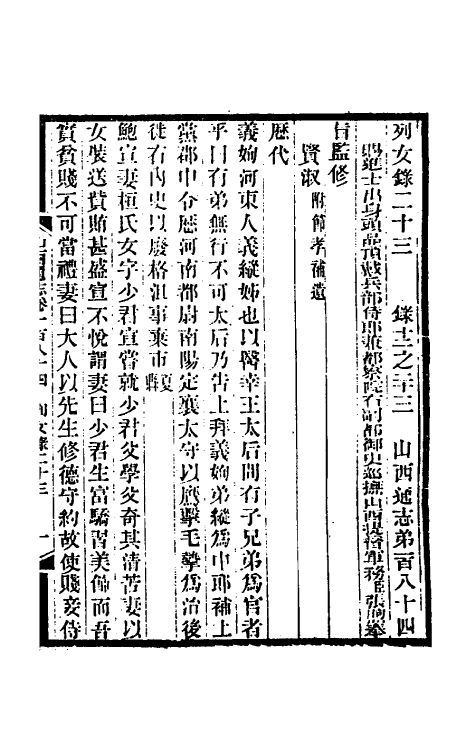 列女錄二十三　錄十二之二十三　山西通志弟百八十四
賜進士出身頭品頂戴兵部侍郎兼都察院右副都御史巡撫山西提督軍務臣張煦奉
旨監修
賢淑附節孝補遺
歷代
義姁河東人義縱姊也以醫幸王太后問有子兄弟爲官者
乎曰有弟無行不可太后乃告上拜義姁弟縱爲中郎補上
黨郡中令歷河南都尉南陽定襄太守以鷹擊毛摯爲治後
徙右內史以廢格沮事棄市
鮑宣妻桓氏女字少君宣嘗就少君父學父奇其清苦妻以
女裝送貲賄甚盛宣不悅謂妻曰少君生富驕習美飾而吾
實貧賤不可當禮妻曰大人以先生修德守約故使賤妾侍
山西通志卷一百八十四　列女錄二十三　一